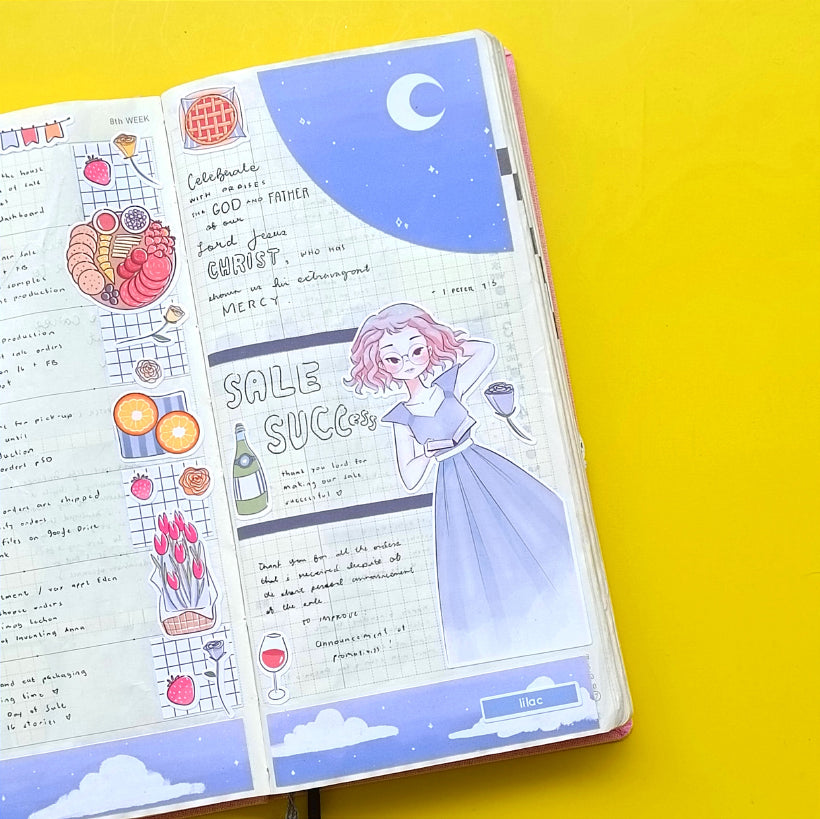 8th WEEK
the house
of sale
dashboard
sale
+ FB
samples
production
production
sale orders
16 + FB
for pick-up
until
orders PSO
orders are shipped
orders
files on Google Drive
vax appt Eden
orders
Lechon
of Inventing Anna
and cut packaging
time ♡
Day of Sale
16 stories ♡
Celebrate
WITH PRAISES
THE GOD AND FATHER
of our
Lord Jesus
CHRIST, WHO HAS
shown us his extravagant
MERCY.
- 1 PETER 1:3
SALE
SUCCESS
thank you Lord for
making our sale
successful ♡
thank you for all the orders
that i received despite of
the short period announcement
of the sale.
TO IMPROVE:
announcement of
promotions!
lilac